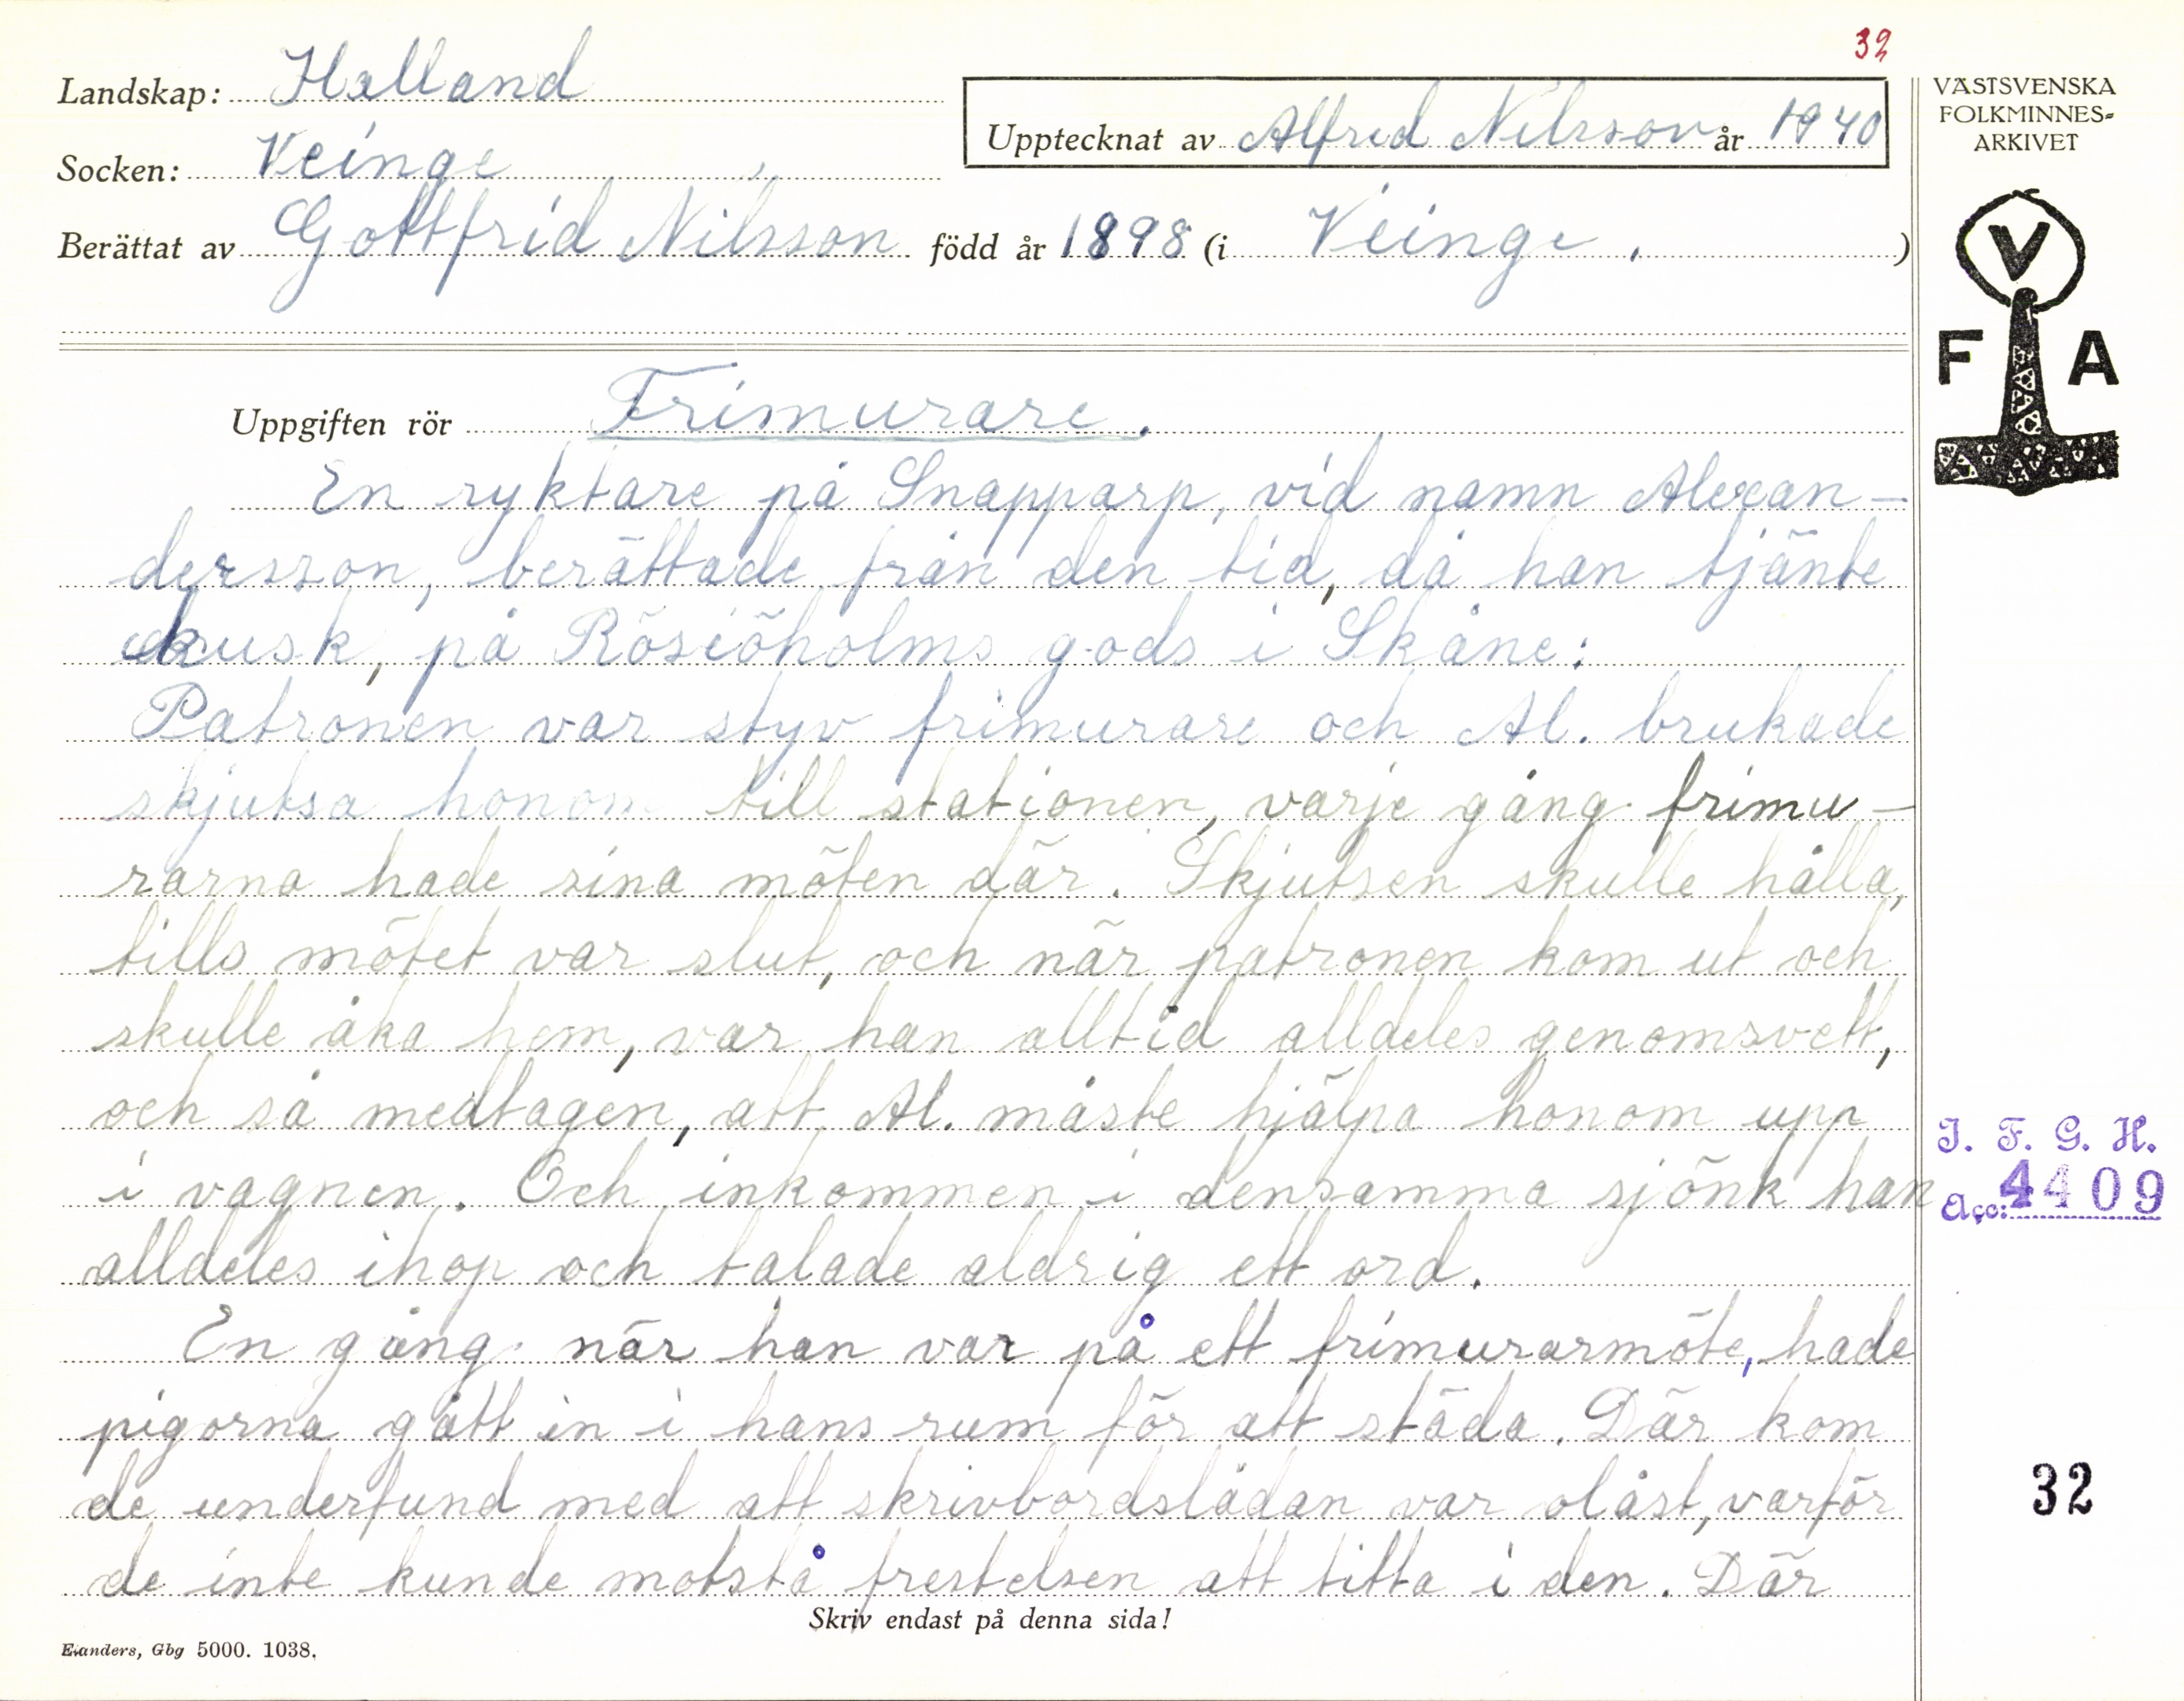 32
Landskap: Halland
Upptecknat av Alfred Nilsson år 1940
Socken: Veinge
Berättat av Gottfrid Nilsson född år 1898 (i Veinge. )
VÄSTSVENSKA
FOLKMINNES-
ARKIVET
V
F A
Uppgiften rör Frimurare.
En ryktare på Snapparp, vid namn Alexan-
dersson, berättade från den tid, då han tjänte
kusk, på Rösiöholms gods i Skåne:
Patronen var styv frimurare och Al. brukade
skjutsa honom till stationen, varje gång frimu-
rarna hade sina möten där. Skjutsen skulle hålla,
tills mötet var slut, och när patronen kom ut och
skulle åka hem, var han alltid alldeles genomsvett,
och så medtagen, att Al. måste hjälpa honom upp
i vagnen. Och inkommen i densamma sjönk han
alldeles ihop och talade aldrig ett ord.
En gång när han var på ett frimurarmöte, hade
pigorna gått in i hans rum för att städa. Där kom
de underfund med att skrivbordslådan var olåst, varför
de inte kunde motstå frestelsen att titta i den. Där
I. F. G. H.
Acc: 4409
32
Skriv endast på denna sida!
Elanders, Gbg 5000. 1038.